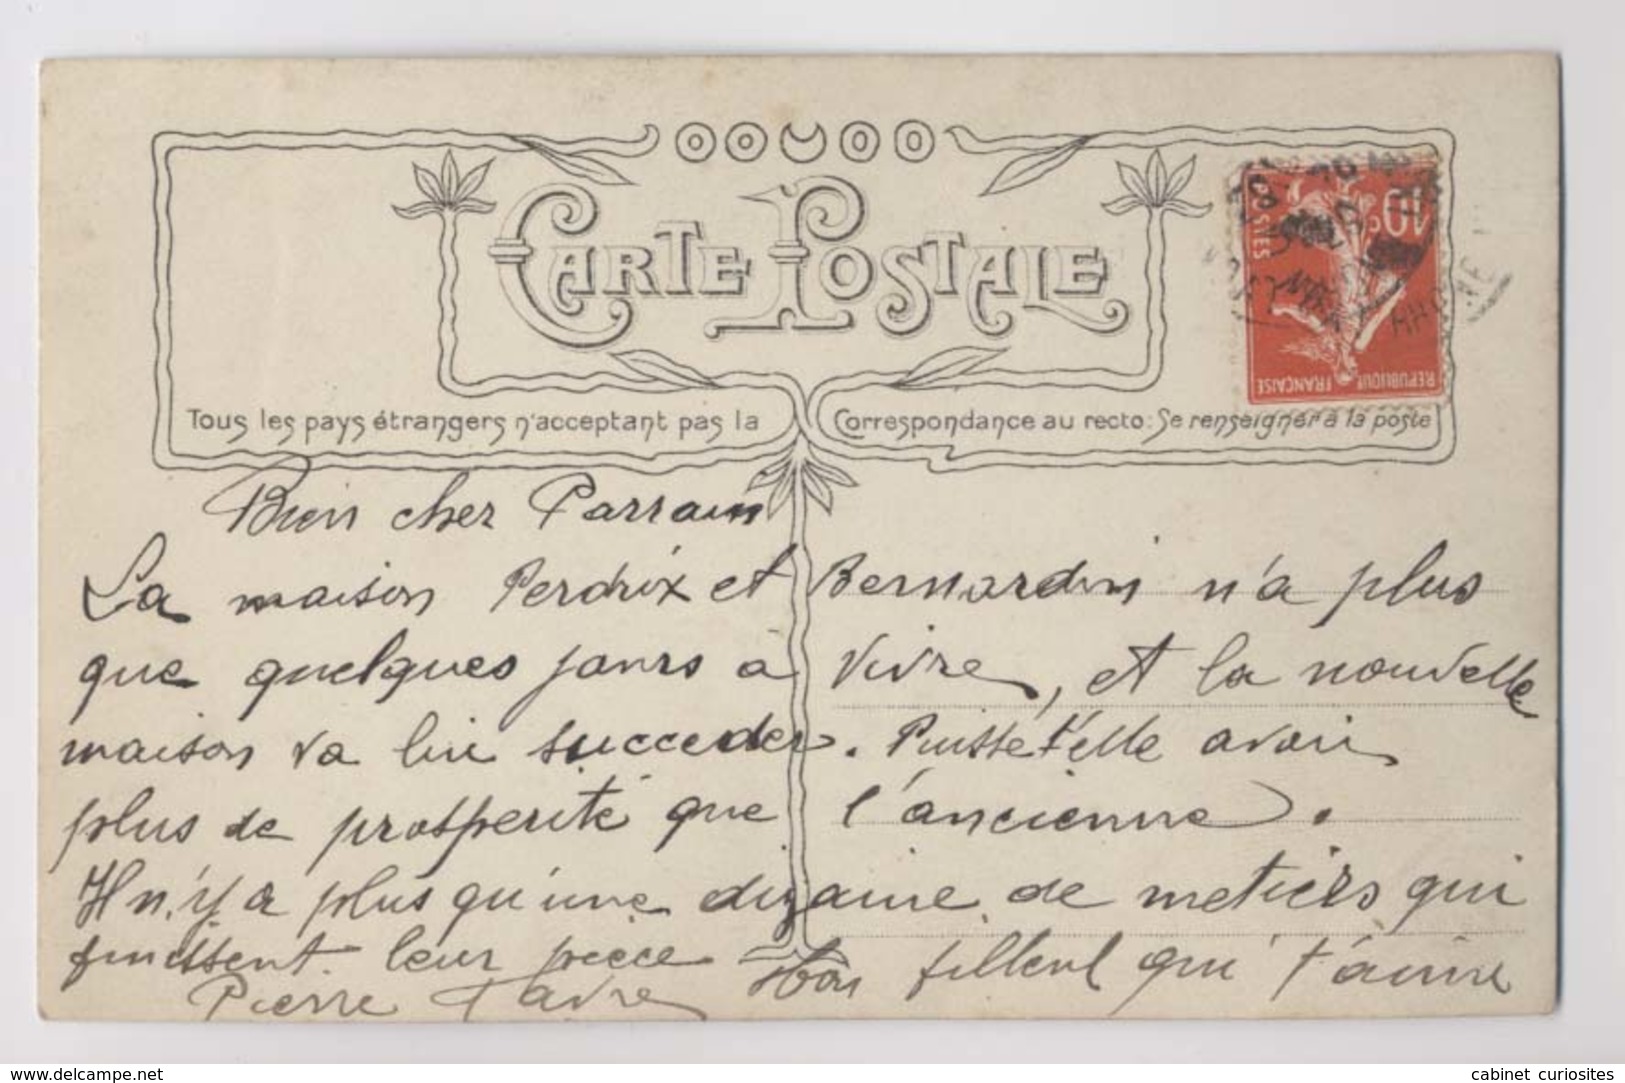 CARTE POSTALE
10c
POSTES
REPUBLIQUE FRANÇAISE
RHONE
Tous les pays étrangers n'acceptent pas la Correspondance au recto: Se renseigner à la poste
Bien cher Parrain
La maison Perdrix et Bernardin n'a plus
que quelques jours à vivre, et la nouvelle
maison va lui succeder. Puisse t'elle avoir
plus de prosperité que l'ancienne.
Il n'y a plus qu'une dizaine de metiers qui
finissent leur pièce Ton filleul qui t'aime
Pierre Favre
www.delcampe.net
cabinet_curiosites